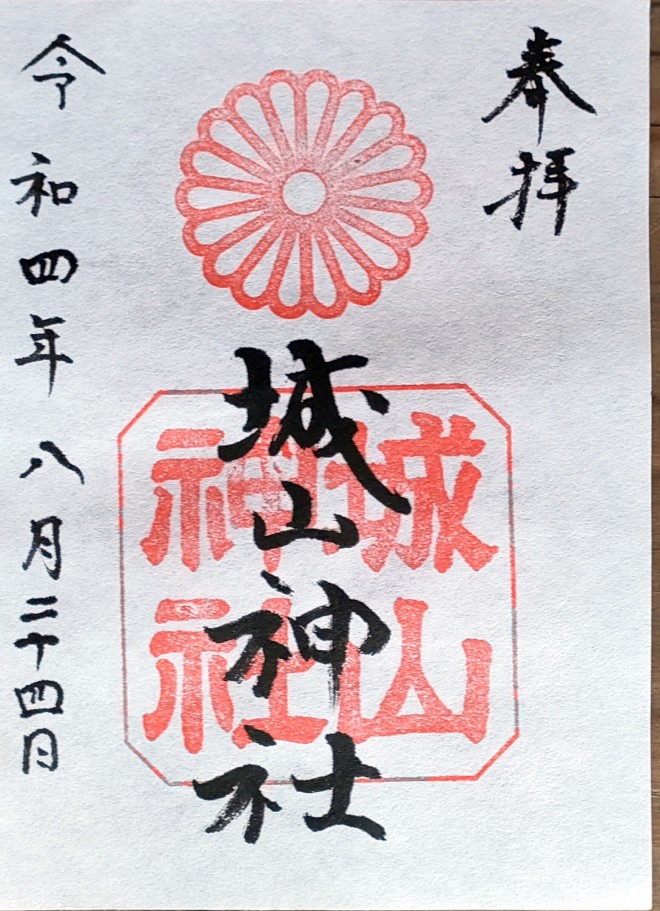 奉拝
城山神社
城山
神社
令和四年八月二十四日